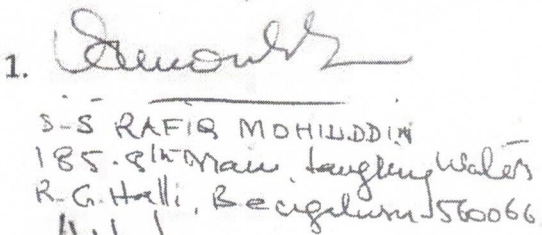 1.
S-S RAFIQ MOHIUDDIN
185. 8th Main, Laughing Waters
R.G. Halli, Bengaluru 560066